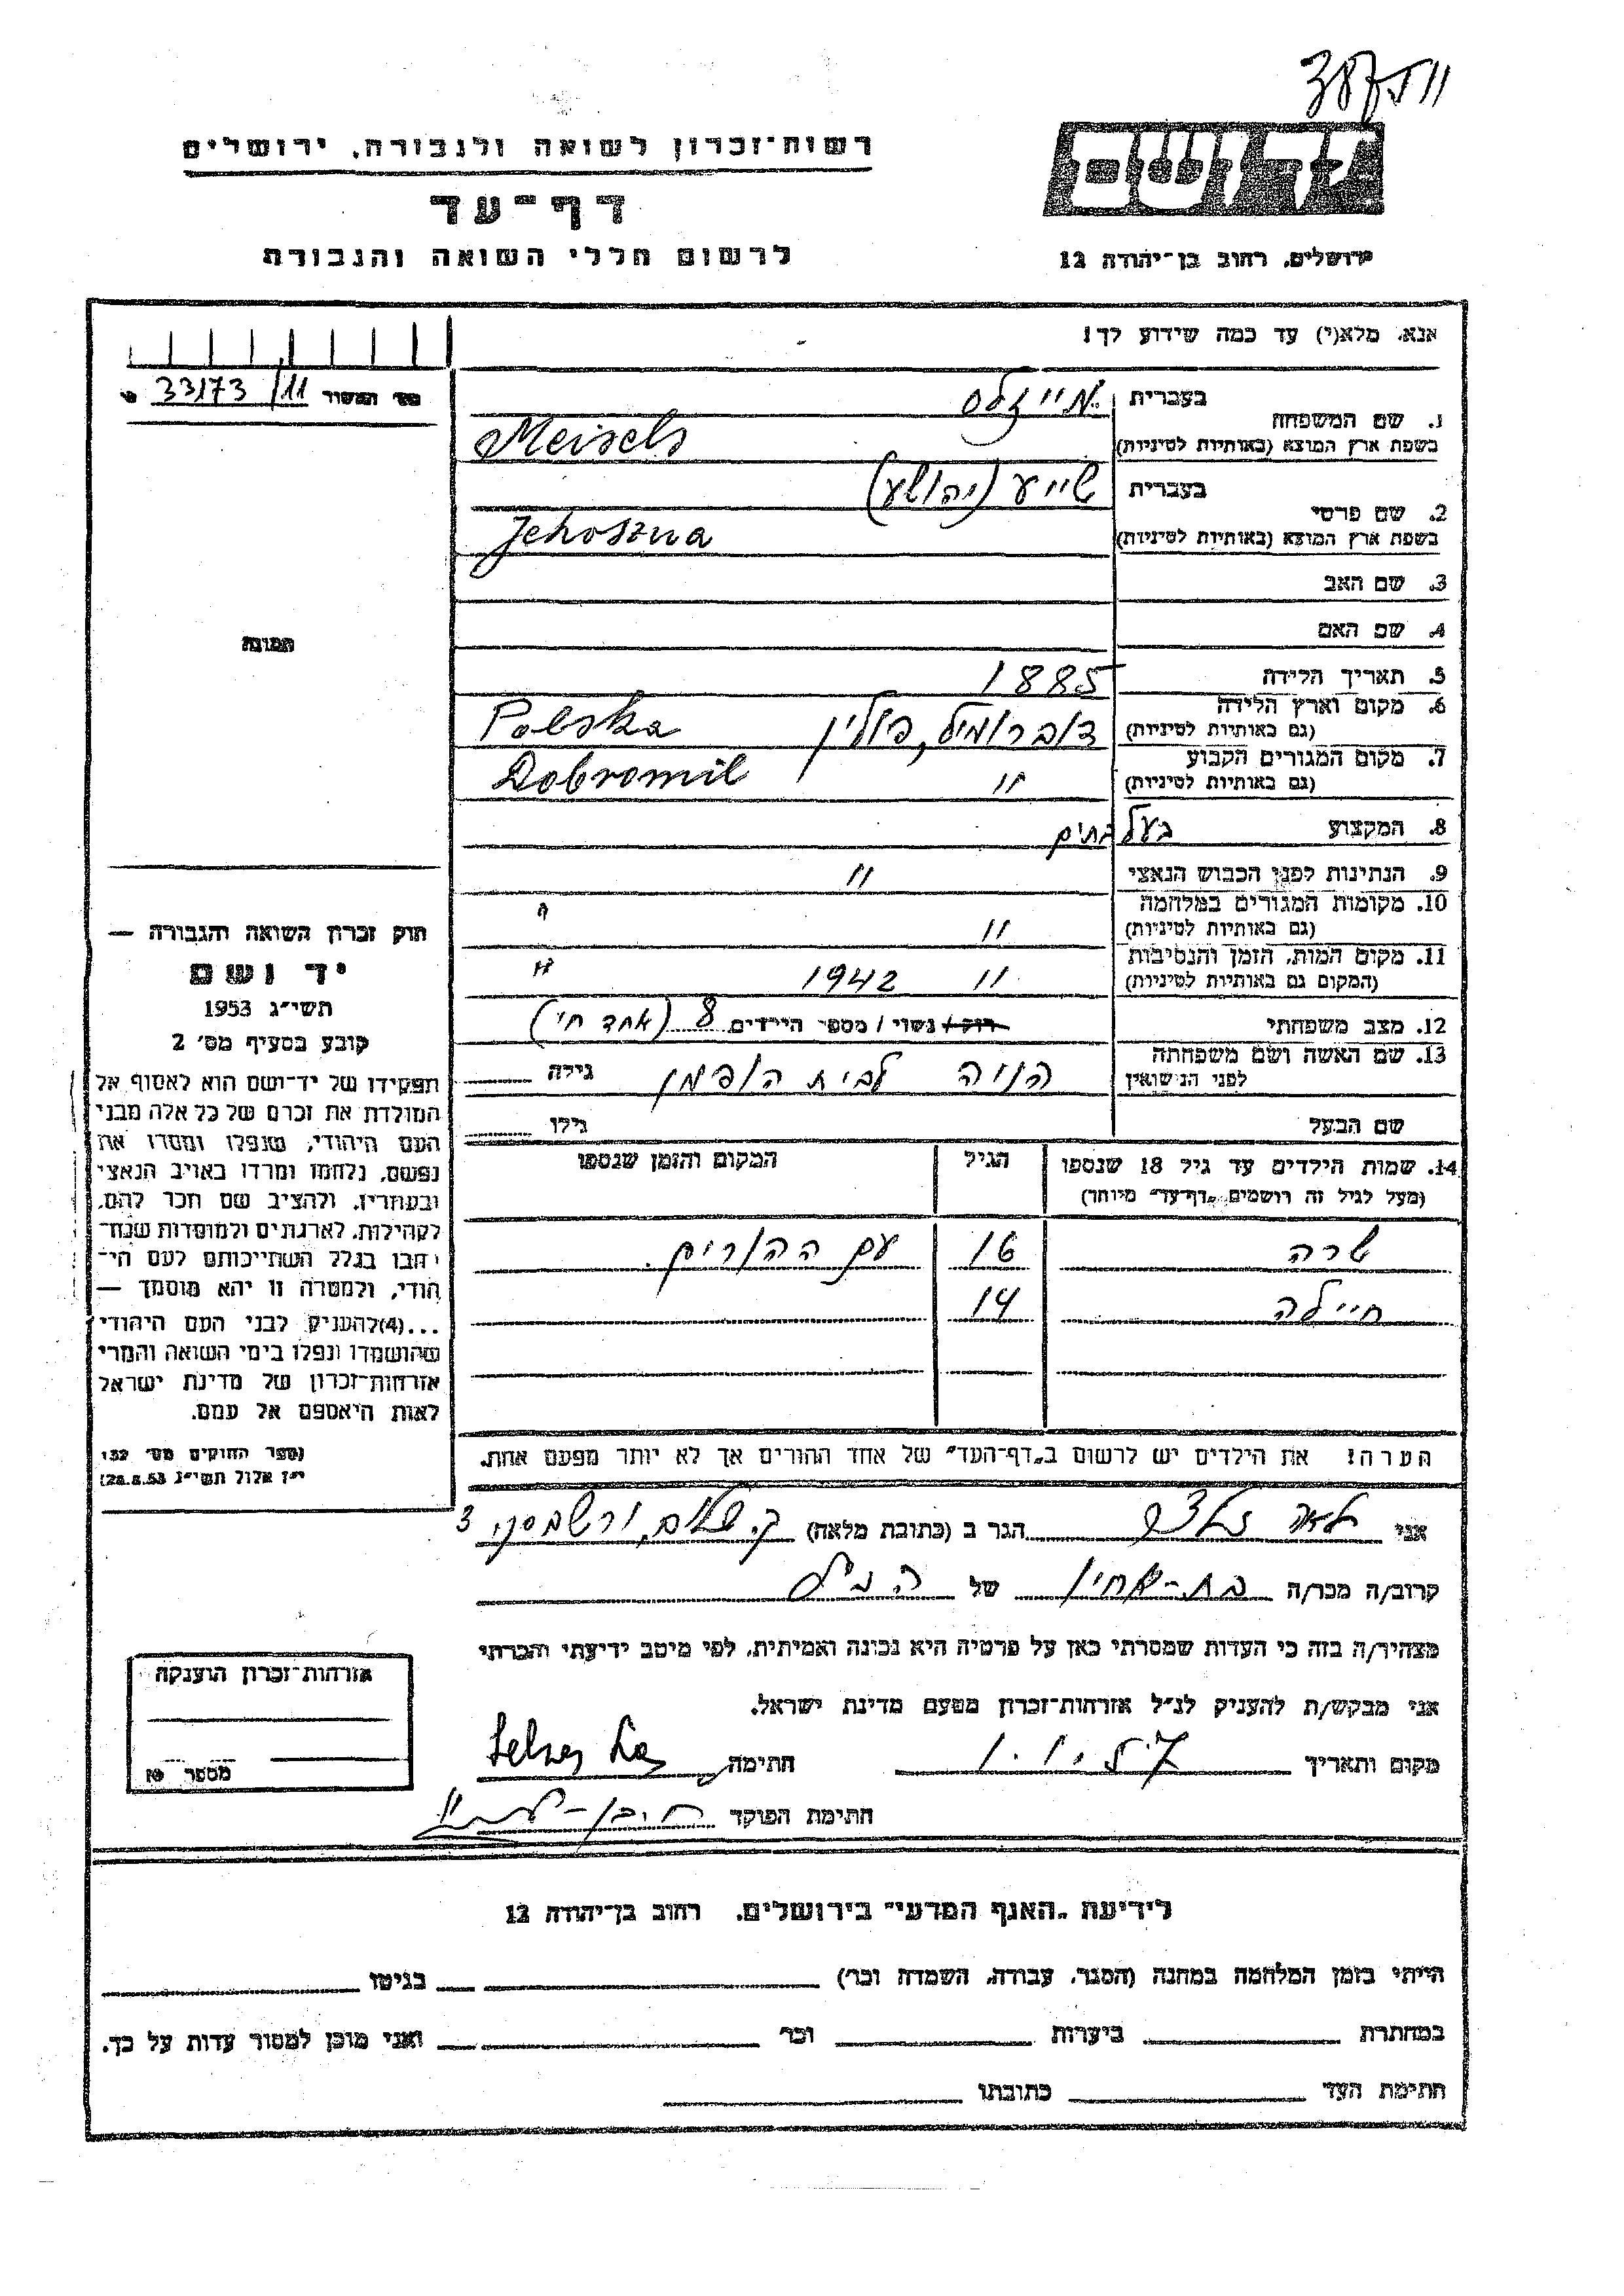 רשות־זכרון לשואה ולגבורה, ירושלים
דף־עד
לרשום חללי השואה והגבורה
ירושלים, רחוב בן־יהודה 12
אנא, מלא(י) עד כמה שידוע לך!
33173/11
בעברית מייזלס
1. שם המשפחה
בשפת ארץ המוצא (באותיות לטיניות) Meisels
בעברית שייע (יהושע)
2. שם פרטי
בשפת ארץ המוצא (באותיות לטיניות) Jehoszua
3. שם האב
4. שם האם
5. תאריך הלידה 1885
6. מקום וארץ הלידה
(גם באותיות לטיניות) דוברומיל, פולין Polska
7. מקום המגורים הקבוע
(גם באותיות לטיניות) " Dobromil
8. המקצוע בעל בתים
9. הנתינות לפני הכבוש הנאצי "
10. מקומות המגורים במלחמה
(גם באותיות לטיניות) " "
11. מקום המות, הזמן והנסיבות
(המקום גם באותיות לטיניות) " 1942 "
12. מצב משפחתי רווק / נשוי / מספר הילדים 8 (אחד חי)
13. שם האשה ושם משפחתה
לפני הנישואין הניה לבית הופמן גילה
שם הבעל גילו
14. שמות הילדים עד גיל 18 שנספו הגיל המקום והזמן שנספו
(מעל לגיל זה רושמים "דף־עד" מיוחד)
שרה 16 עם ההורים.
חיילה 14
הערה! את הילדים יש לרשום ב"דף־העד" של אחד ההורים אך לא יותר מפעם אחת.
תמונה
חוק זכרון השואה והגבורה —
יד ושם
תשי״ג 1953
קובע בסעיף מס׳ 2
תפקידו של יד־ושם הוא לאסוף אל
המולדת את זכרם של כל אלה מבני
העם היהודי, שנפלו ומסרו את
נפשם, נלחמו ומרדו באויב הנאצי
ובעוזריו, ולהציב שם וזכר להם,
לקהילות, לארגונים ולמוסדות שנח־
רבו בגלל השתייכותם לעם הי־
הודי, ולמטרה זו יהא מוסמך —
...(4) להעניק לבני העם היהודי
שהושמדו ונפלו בימי השואה והמרי
אזרחות־זכרון של מדינת ישראל
לאות היאספם אל עמם.
(ספר החוקים מס׳ 132
י״ז אלול תשי״ג 28.8.53)
אני לאה זלצר הגר ב (כתובת מלאה) ק. שלום, ורשבסקי 3
קרוב/ה מכר/ה בת-אחין של הנ״ל
מצהיר/ה בזה כי העדות שמסרתי כאן על פרטיה היא נכונה ואמיתית, לפי מיטב ידיעתי והכרתי
אני מבקש/ת להעניק לנ״ל אזרחות־זכרון מטעם מדינת ישראל.
מקום ותאריך חתימה
חתימת הפוקד
אזרחות־זכרון הוענקה
מספר
לידיעת "האגף המדעי" בירושלים, רחוב בן־יהודה 12
הייתי בזמן המלחמה במחנה (הסגר, עבודה, השמדה וכר׳) בגיטו
במחתרת ביערות וכר׳ ואני מוכן למסור עדות על כך.
חתימת העד כתובתו